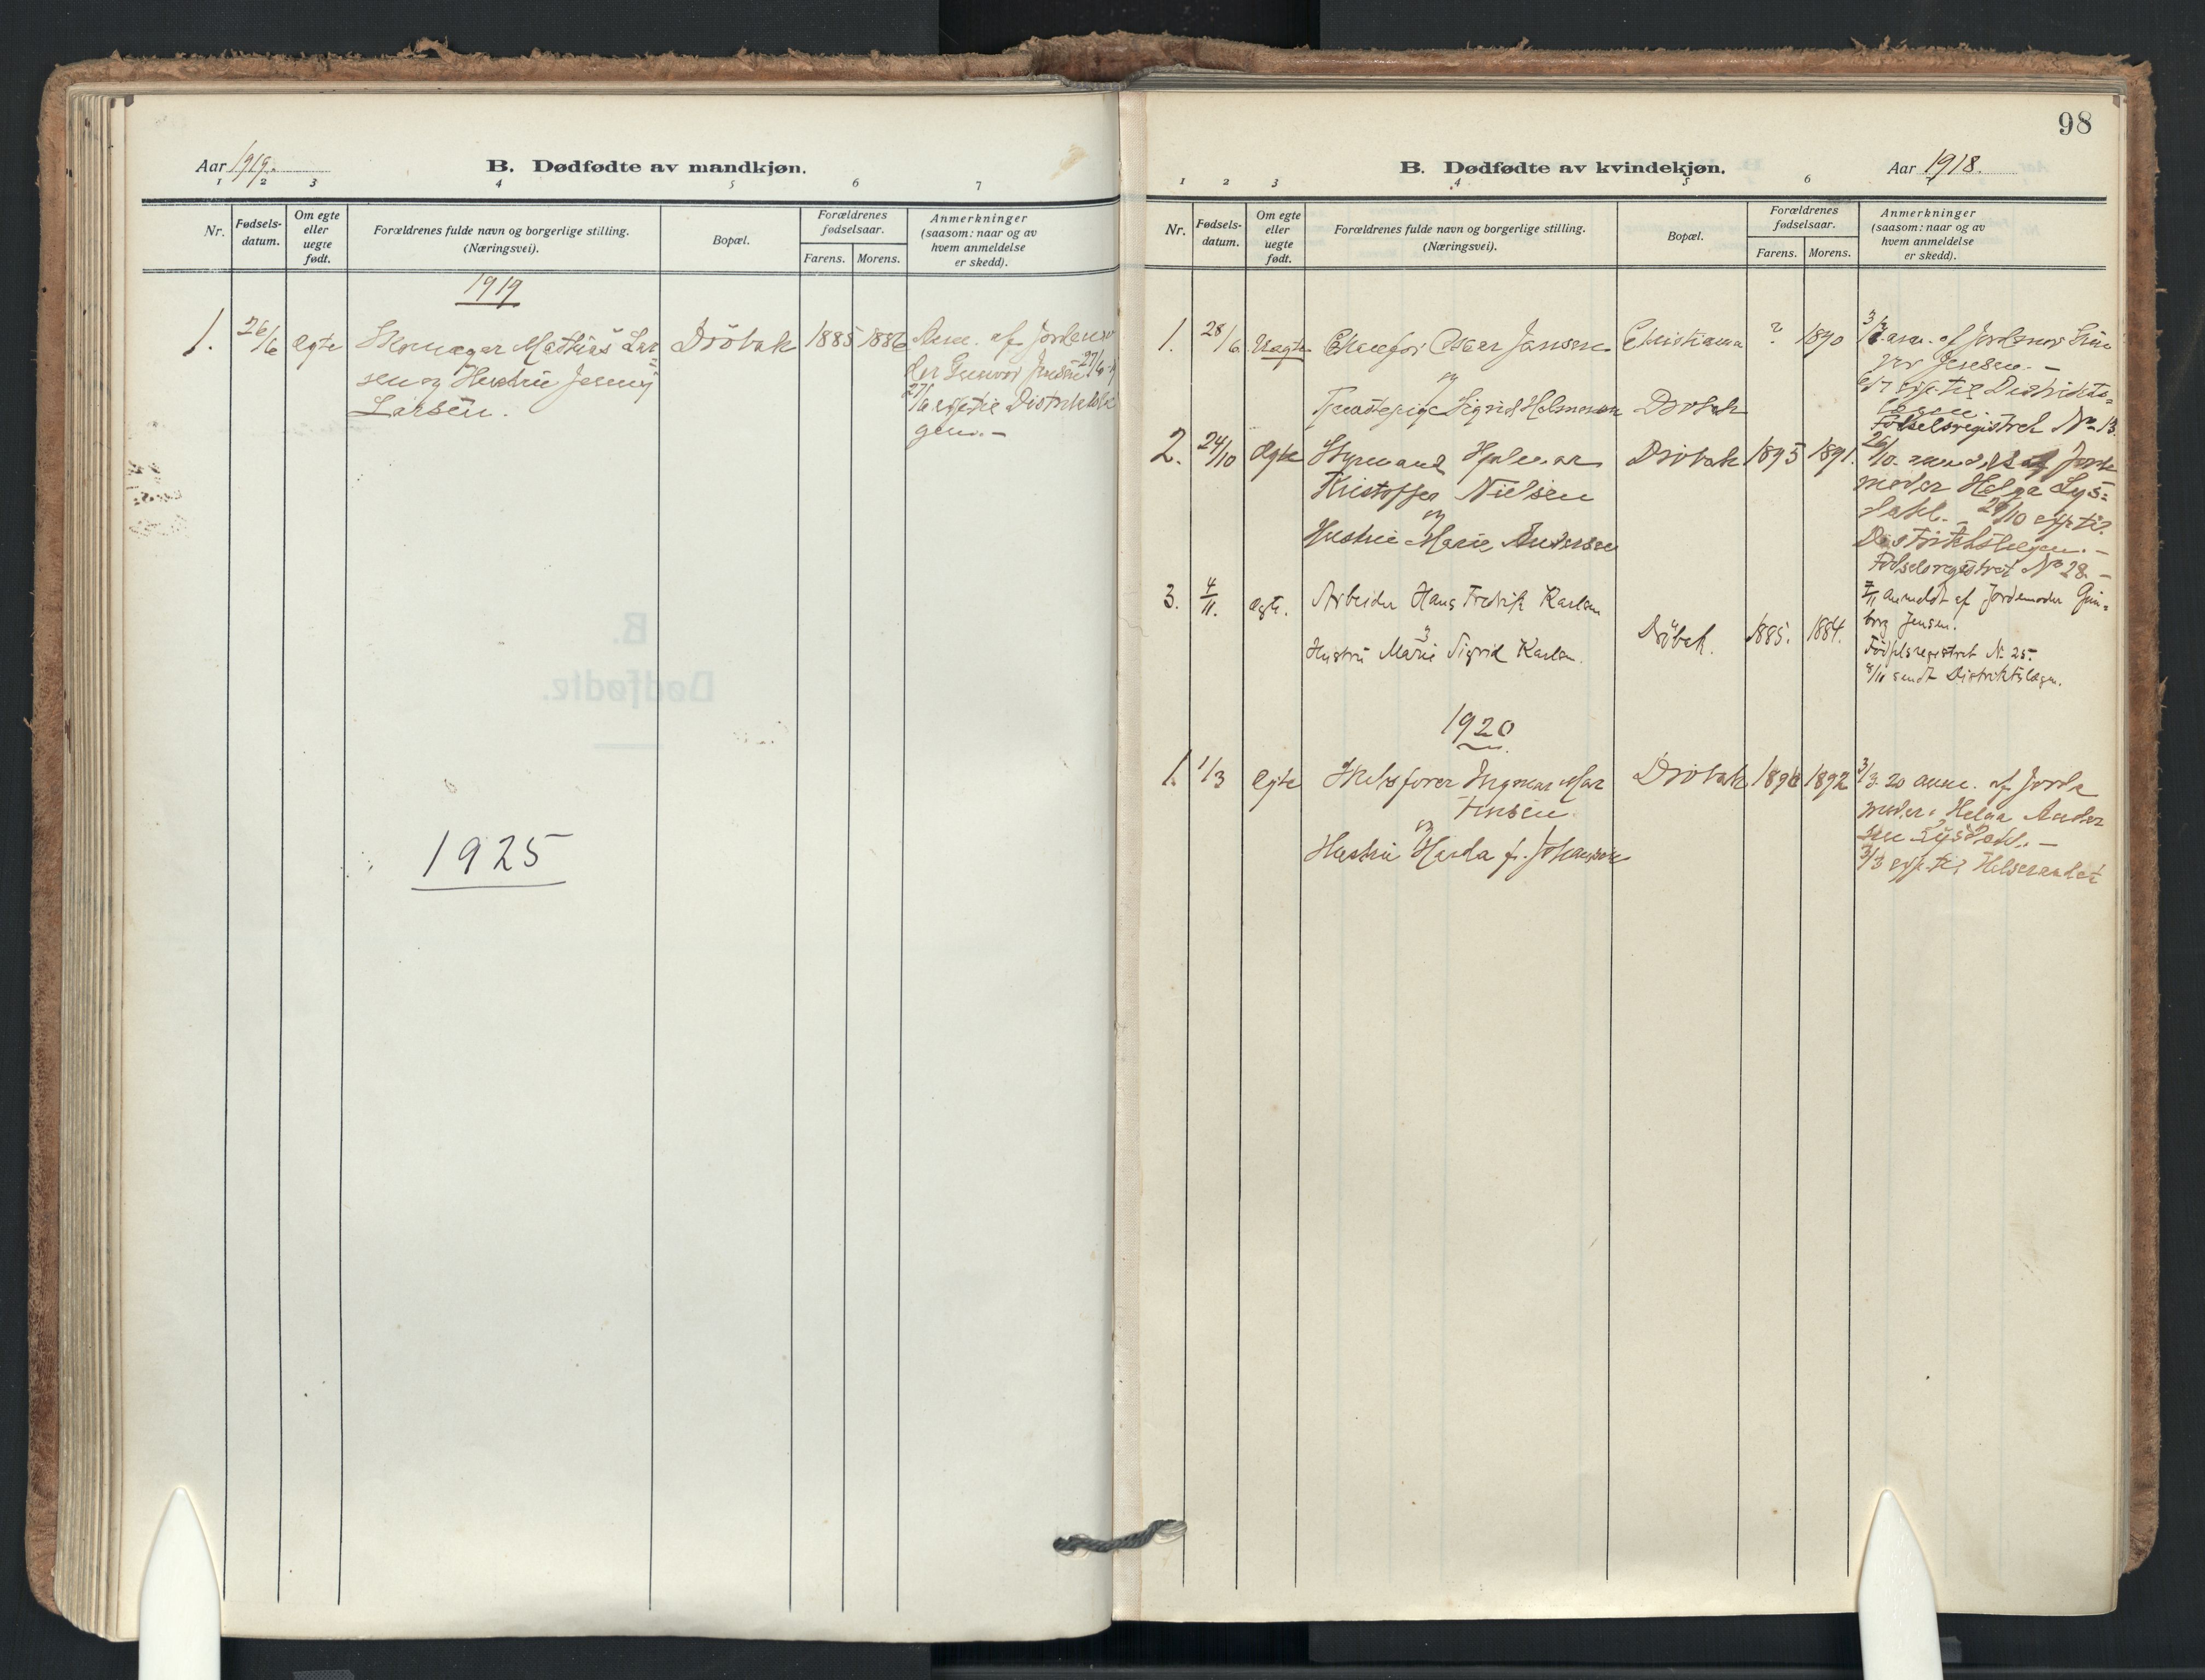 Aar 1919.
B. Dødfødte av mandkjøn.
1 2 3 4 5 6 7
Nr.
Fødsels-
datum.
Om egte
eller
uegte
født.
Forældrenes fulde navn og borgerlige stilling.
(Næringsvei).
Bopæl.
Forældrenes
fødselsaar.
Farens. Morens.
Anmerkninger
(saasom: naar og av
hvem anmeldelse
er skedd).
1919
1. 26/6 Ægte
Skomager Mathias Lar=
sen og Hustru Jenny
Larsen.
Dröbak 1885 1886
Anm. af Jordemo
der Gunvor Jensen 27/6-19
27/6 Distriktslæ
gen.-
1925
98
B. Dødfødte av kvindekjøn.
Aar 1918.
1 2 3 4 5 6 7
Nr.
Fødsels-
datum.
Om egte
eller
uegte
født.
Forældrenes fulde navn og borgerlige stilling.
(Næringsvei).
Bopæl.
Forældrenes
fødselsaar.
Farens. Morens.
Anmerkninger
(saasom: naar og av
hvem anmeldelse
er skedd).
1. 28/6 Uægte
Oscar Jansen
og
Tjenestepige Sigrid Halvorsen
Christiania
Dröbak
? 1890
Jensen.-
Distrikts=
lægen.
Fødselsregistret No 13.
2. 24/10 Ægte
Styrmand Hjalmar
Kristoffer Nielsen
og
Hustru Marie Andersen
Dröbak 1895 1891.
26/10 af Jorde
moder Helga Lys=
dahl. - 29/10
Distriktslægen.-
Fødselsregistret No 28.-
3. 4/11. Ægte.
Arbeider Hans Fredrik Karlsen
og
Hustru Marie Sigrid Karlsen.
Dröbak. 1885. 1884.
7/11 anmeldt af Jordemoder Gun=
borg Jensen.
Födselsregistret No 25.
8/11 sendt Distriktslægen.
1920
1. 1/3 Ægte
Ingvar Mar
tinsen
og
Hustru Harda f. Johansen
Dröbak 1892
3/3 20 anm. af Jorde
moder Helga Ander
sen Lysdahl.-
3/3 Helseraadet